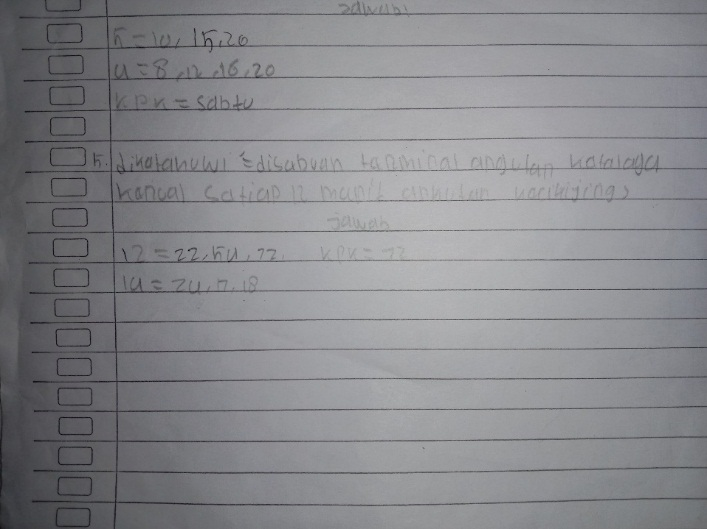 Jawab:
5 = 10, 15, 20
4 = 8, 12, 16, 20
KPK = sabtu
5. dikatahuwi = disabuah tarminal angutan kotalaga
kancal satiap 12 manit
jawab
12 = 22, 54, 72. KPK = 72
14 = 24, 7, 18